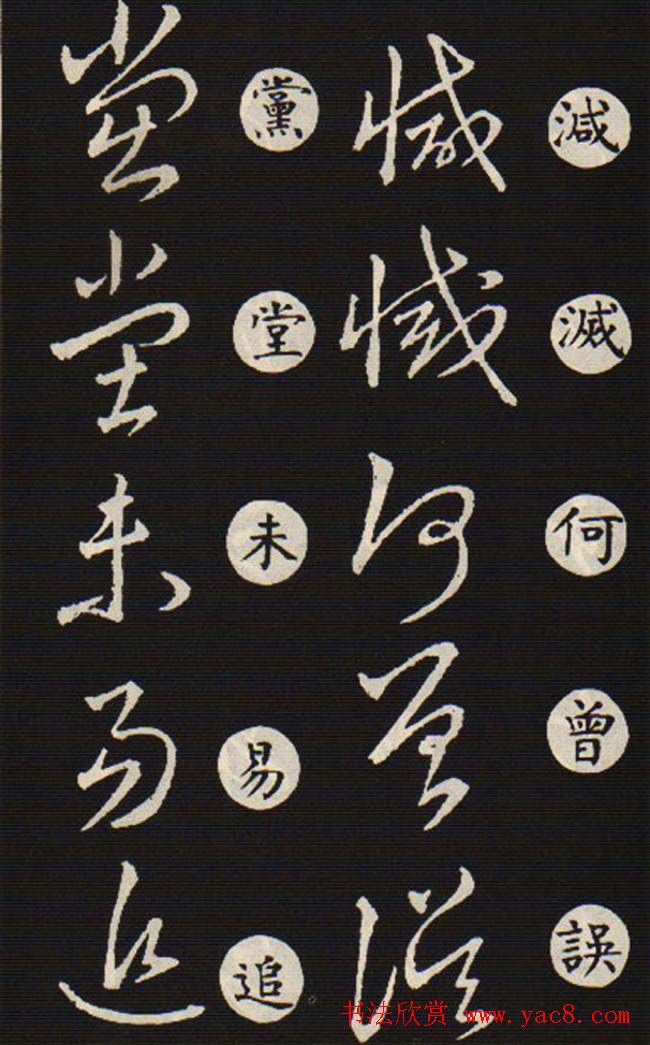 減滅何曾誤
黨堂未易追
书法欣赏 www.yac8.com